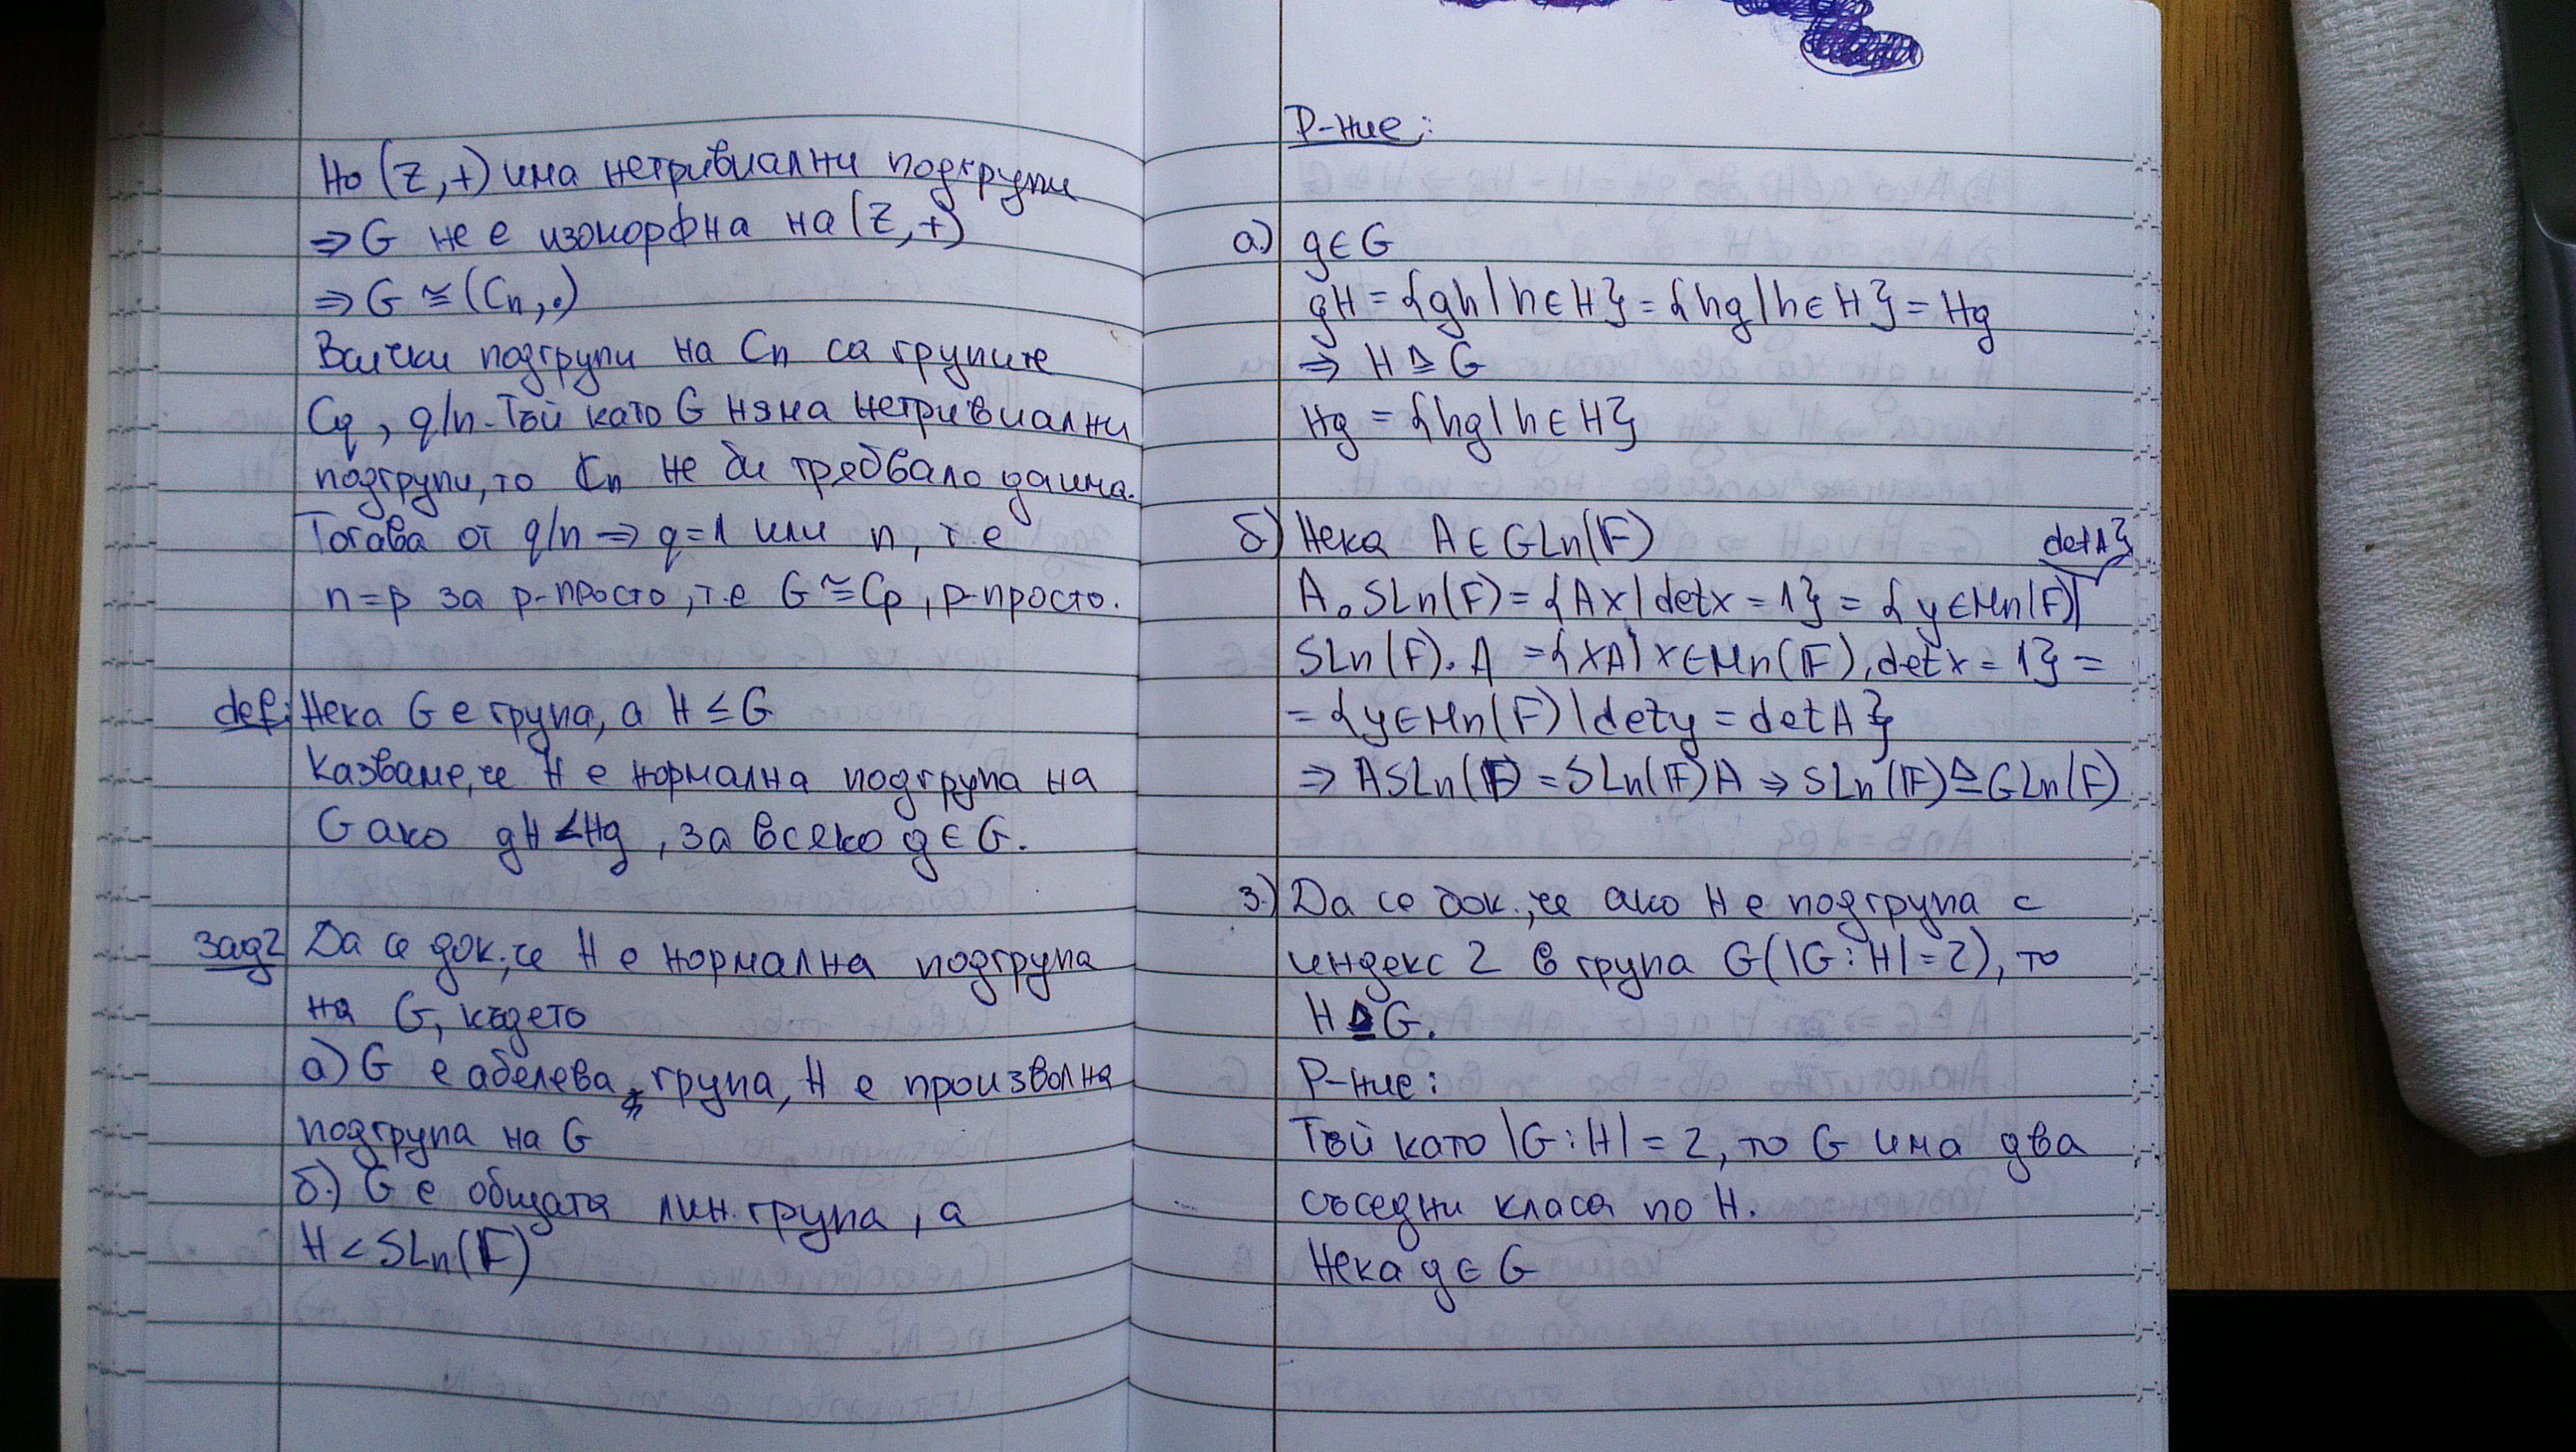 Но (Z,+) има нетривиални подгрупи
⇒ G не е изоморфна на (Z,+)
⇒ G ≅ (Cn, .)
Всички подгрупи на Cn са групите
Cq, q/n. Тъй като G няма нетривиални
подгрупи, то Cn не би трябвало да има.
Тогава от q/n ⇒ q=1 или n, т.е
n=p за p-просто, т.е G ≅ Cp, p-просто.
def: Нека G е група, а H ≤ G
Казваме, че H е нормална подгрупа на
G ако gH < Hg, за всяко g ∈ G.
Зад2 Да се док., че H е нормална подгрупа
на G, където
а) G е абелева група, H е произволна
подгрупа на G
б.) G е общата лин. група, а
H < SLn(F)
Р-ние:
а.) g ∈ G
gH = {gh | h ∈ H} = {hg | h ∈ H} = Hg
⇒ H ⊴ G
Hg = {hg | h ∈ H}
б) Нека A ∈ GLn(F)
det A}
A. SLn(F) = {Ax | det x = 1} = {y ∈ Mn(F)|
SLn(F). A = {xA | x ∈ Mn(F), det x = 1} =
= {y ∈ Mn(F) | det y = det A}
⇒ ASLn(F) = SLn(F)A ⇒ SLn(F) ⊴ GLn(F)
3.) Да се док., че ако H е подгрупа с
индекс 2 в група G(|G:H| = 2), то
H ⊴ G.
Р-ние:
Тъй като |G:H| = 2, то G има два
съседни класа по H.
Нека g ∈ G